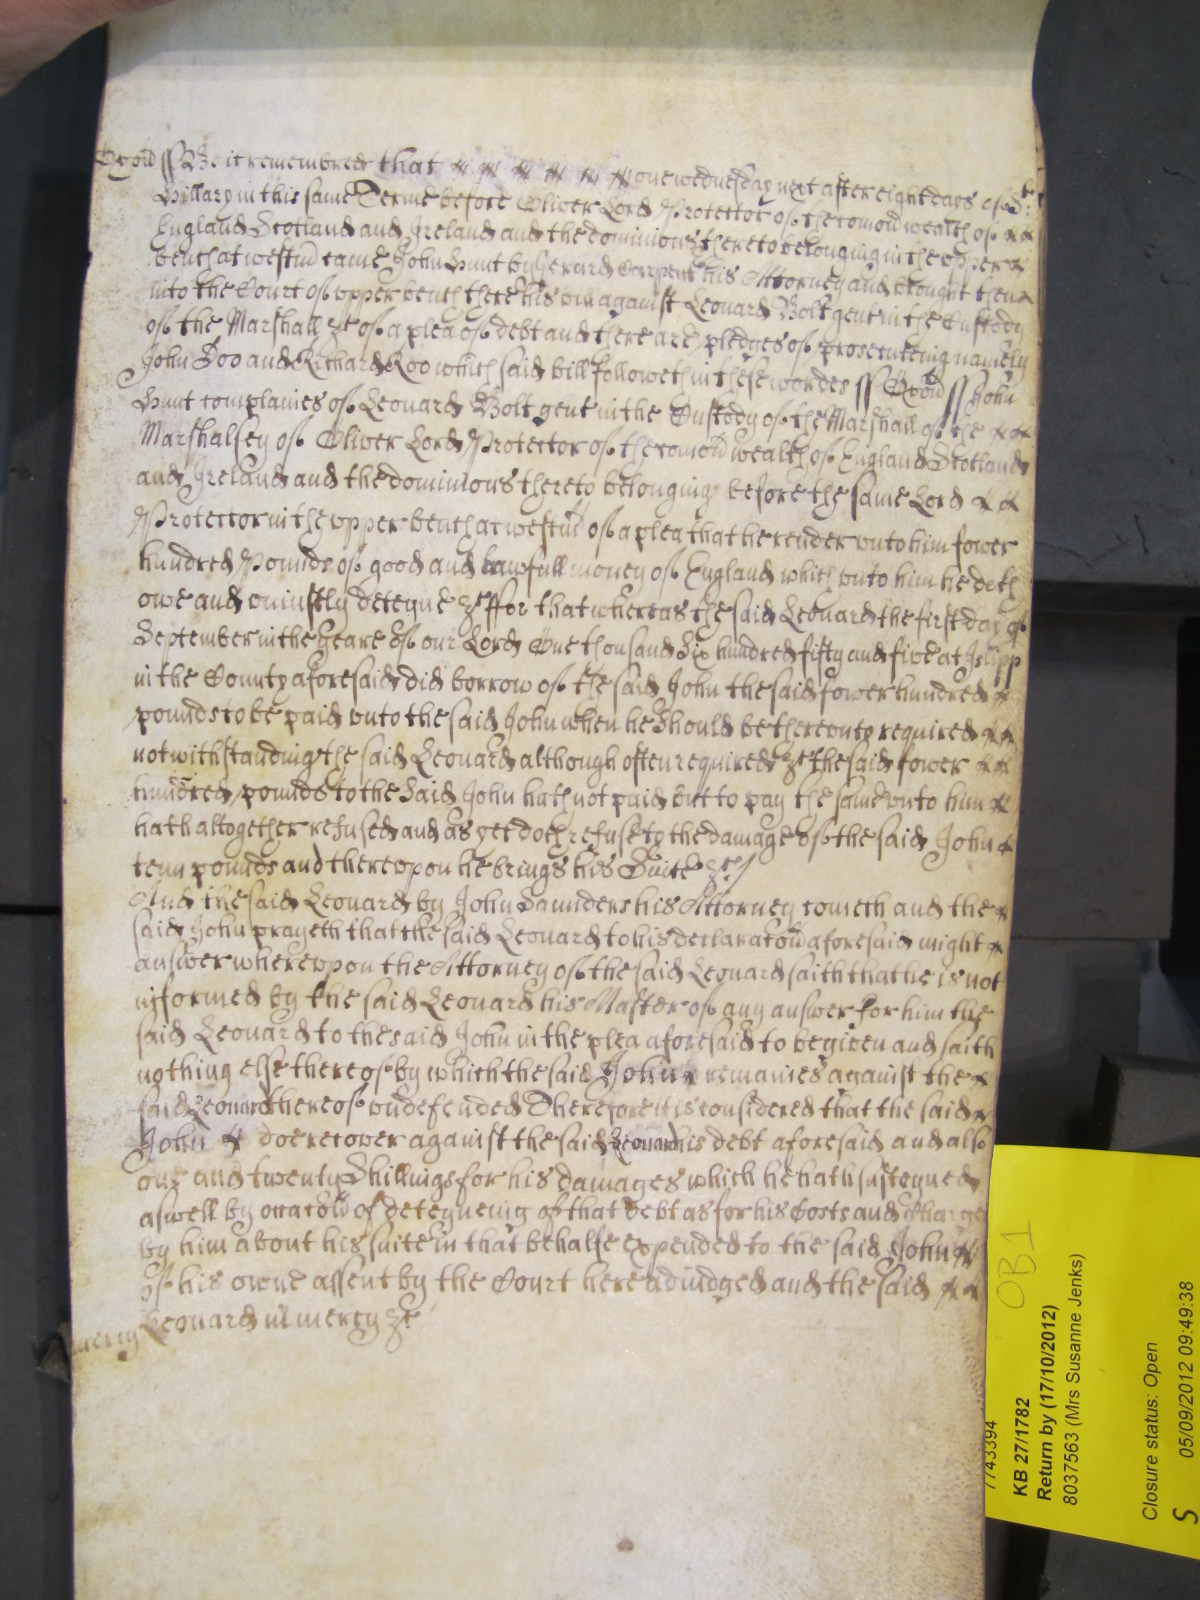 Oxoñ ss Be it remembred that on wednesday next after eight days of St
Hillary in this same Terme before Oliver Lord Protector of the comoñ wealth of
England Scotland and Ireland and the dominions thereto belonging in the upper
bench at westm̃ came John Hunt by Gerard Carpent his Attorney and brought then
into the Court of upper bench there his bill against Leonard Bolt gent in the Custody
of the Marshall &c of a plea of debt and there are pledges of prosecuteing namely
John Doo and Richard Roo which said bill followeth in these wordes ss Oxoñ ss John
Hunt complaines of Leonard Bolt gent in the Custody of the Marshall of the
Marshalsey of Oliver Lord Protector of the comoñ wealth of England Scotland
and Ireland and the dominions thereto belonging before the same Lord
Protector in the upper bench at westm̃ of a plea that he render unto him fower
hundred Pounds of good and lawfull money of England which unto him he doth
owe and uniustly deteyne &c ffor that whereas the said Leonard the first day of
September in the yeare of our Lord One thousand Six hundred fifty and five at Islipp
in the County aforesaid did borrow of the said John the said fower hundred
pounds to be paid unto the said John when he should be thereunto required
notwithstanding the said Leonard although often required &c the said fower
hundred pounds to the said John hath not paid but to pay the same unto him
hath altogether refused and as yet doth refuse to the damage of the said John
tenn pounds and thereupon he brings his Suite &c /
And the said Leonard by John Saunders his Attorney cometh and the
said John prayeth that the said Leonard to his declaracoñ aforesaid might
answer whereupon the Attorney of the said Leonard saith that he is not
informed by the said Leonard his Master of any answer for him the
said Leonard to the said John in the plea aforesaid to be given and saith
nothing else thereof by which the said John remaines against the
said Leonard thereof undefended Therefore it is considered that the said
John doe recover against the said Leonard his debt aforesaid and also
one and twenty Shillings for his damages which he hath susteyned
aswell by occacoñ of deteyneing of that debt as for his Costs and Charges
by him about his suite in that behalfe expended to the said John
of his owne assent by the Court here adiudged and the said
Leonard in mercy &c
mercy
7743394
KB 27/1782
Return by (17/10/2012)
8037563 (Mrs Susanne Jenks)
OB1
Closure status: Open
05/09/2012 09:49:38
S